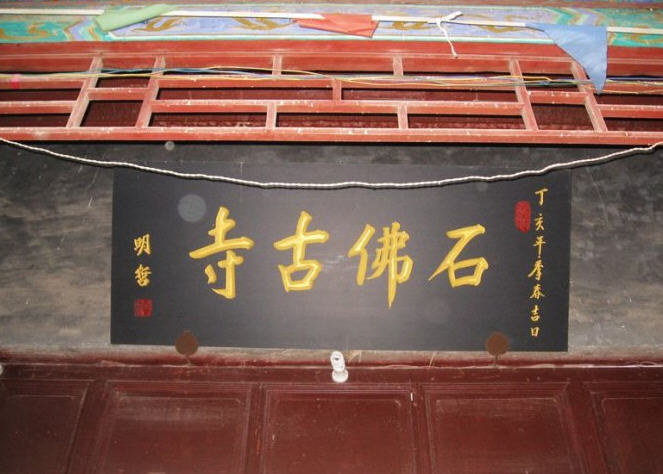 丁亥年季春吉日
石佛古寺
明哲